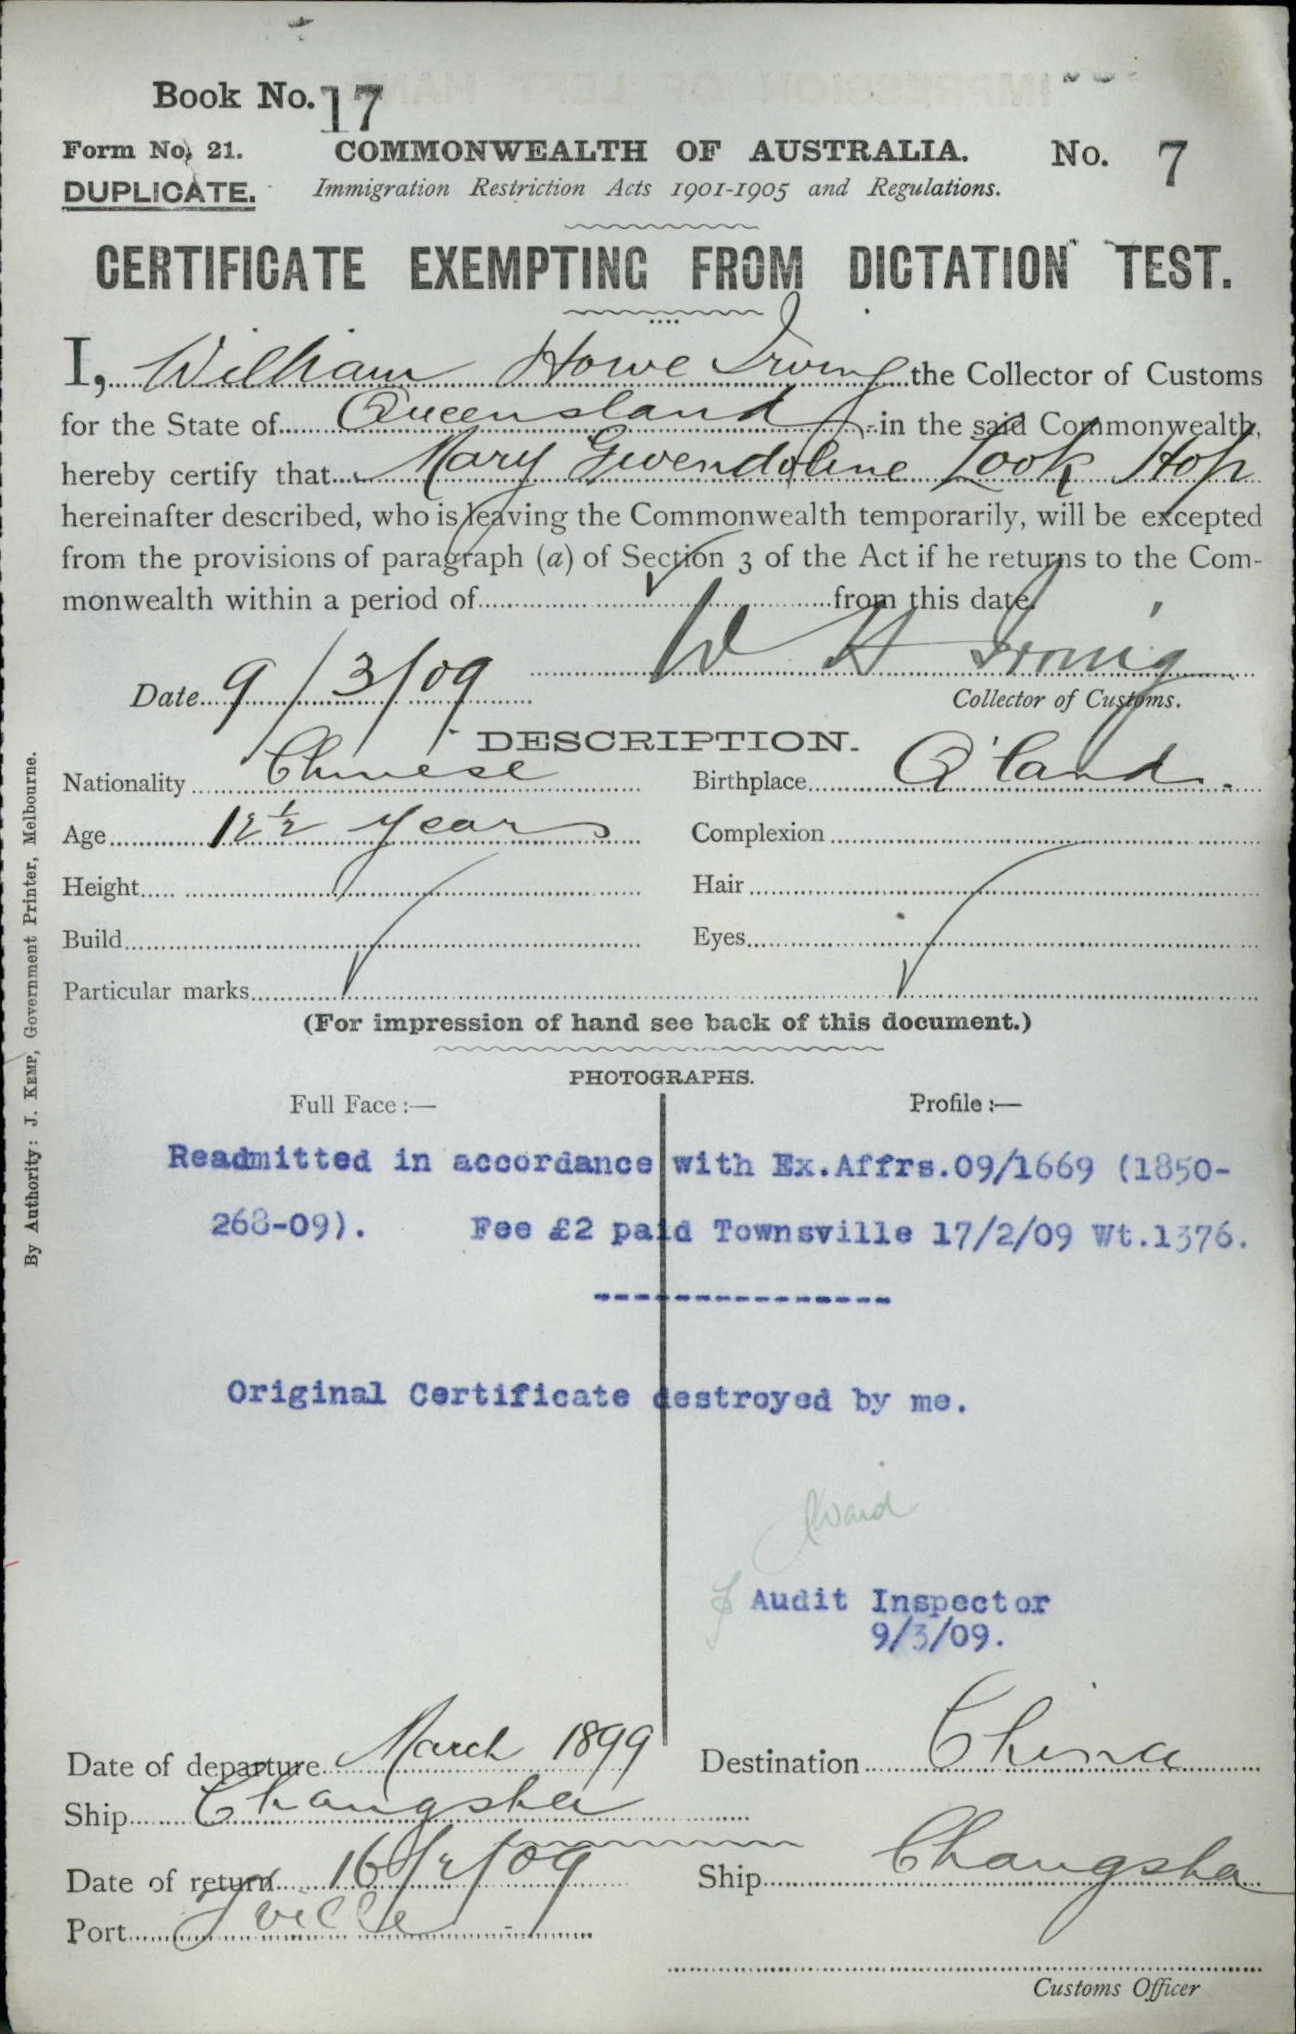 Book No. 17
Form No. 21. COMMONWEALTH OF AUSTRALIA. No. 7
DUPLICATE. Immigration Restriction Acts 1901-1905 and Regulations.
CERTIFICATE EXEMPTING FROM DICTATION TEST.
I, William Howe Irving the Collector of Customs
for the State of Queensland in the said Commonwealth,
hereby certify that Mary Gwendoline Look Hop
hereinafter described, who is leaving the Commonwealth temporarily, will be excepted
from the provisions of paragraph (a) of Section 3 of the Act if he returns to the Com-
monwealth within a period of from this date.
W H Irving
Date 9/3/09 Collector of Customs.
DESCRIPTION.
Nationality Chinese Birthplace Q'land.
Age 12½ years Complexion
Height Hair
Build Eyes
Particular marks
(For impression of hand see back of this document.)
PHOTOGRAPHS.
Full Face :— Profile :—
Readmitted in accordance with Ex.Affrs.09/1669 (1850-
268-09). Fee £2 paid Townsville 17/2/09 Wt.1376.
----------------
Original Certificate destroyed by me.
Audit Inspector
9/3/09.
Date of departure March 1899 Destination China
Ship Changsha
Date of return 16/2/09 Ship Changsha
Port Tville
Customs Officer
By Authority: J. KEMP, Government Printer, Melbourne.